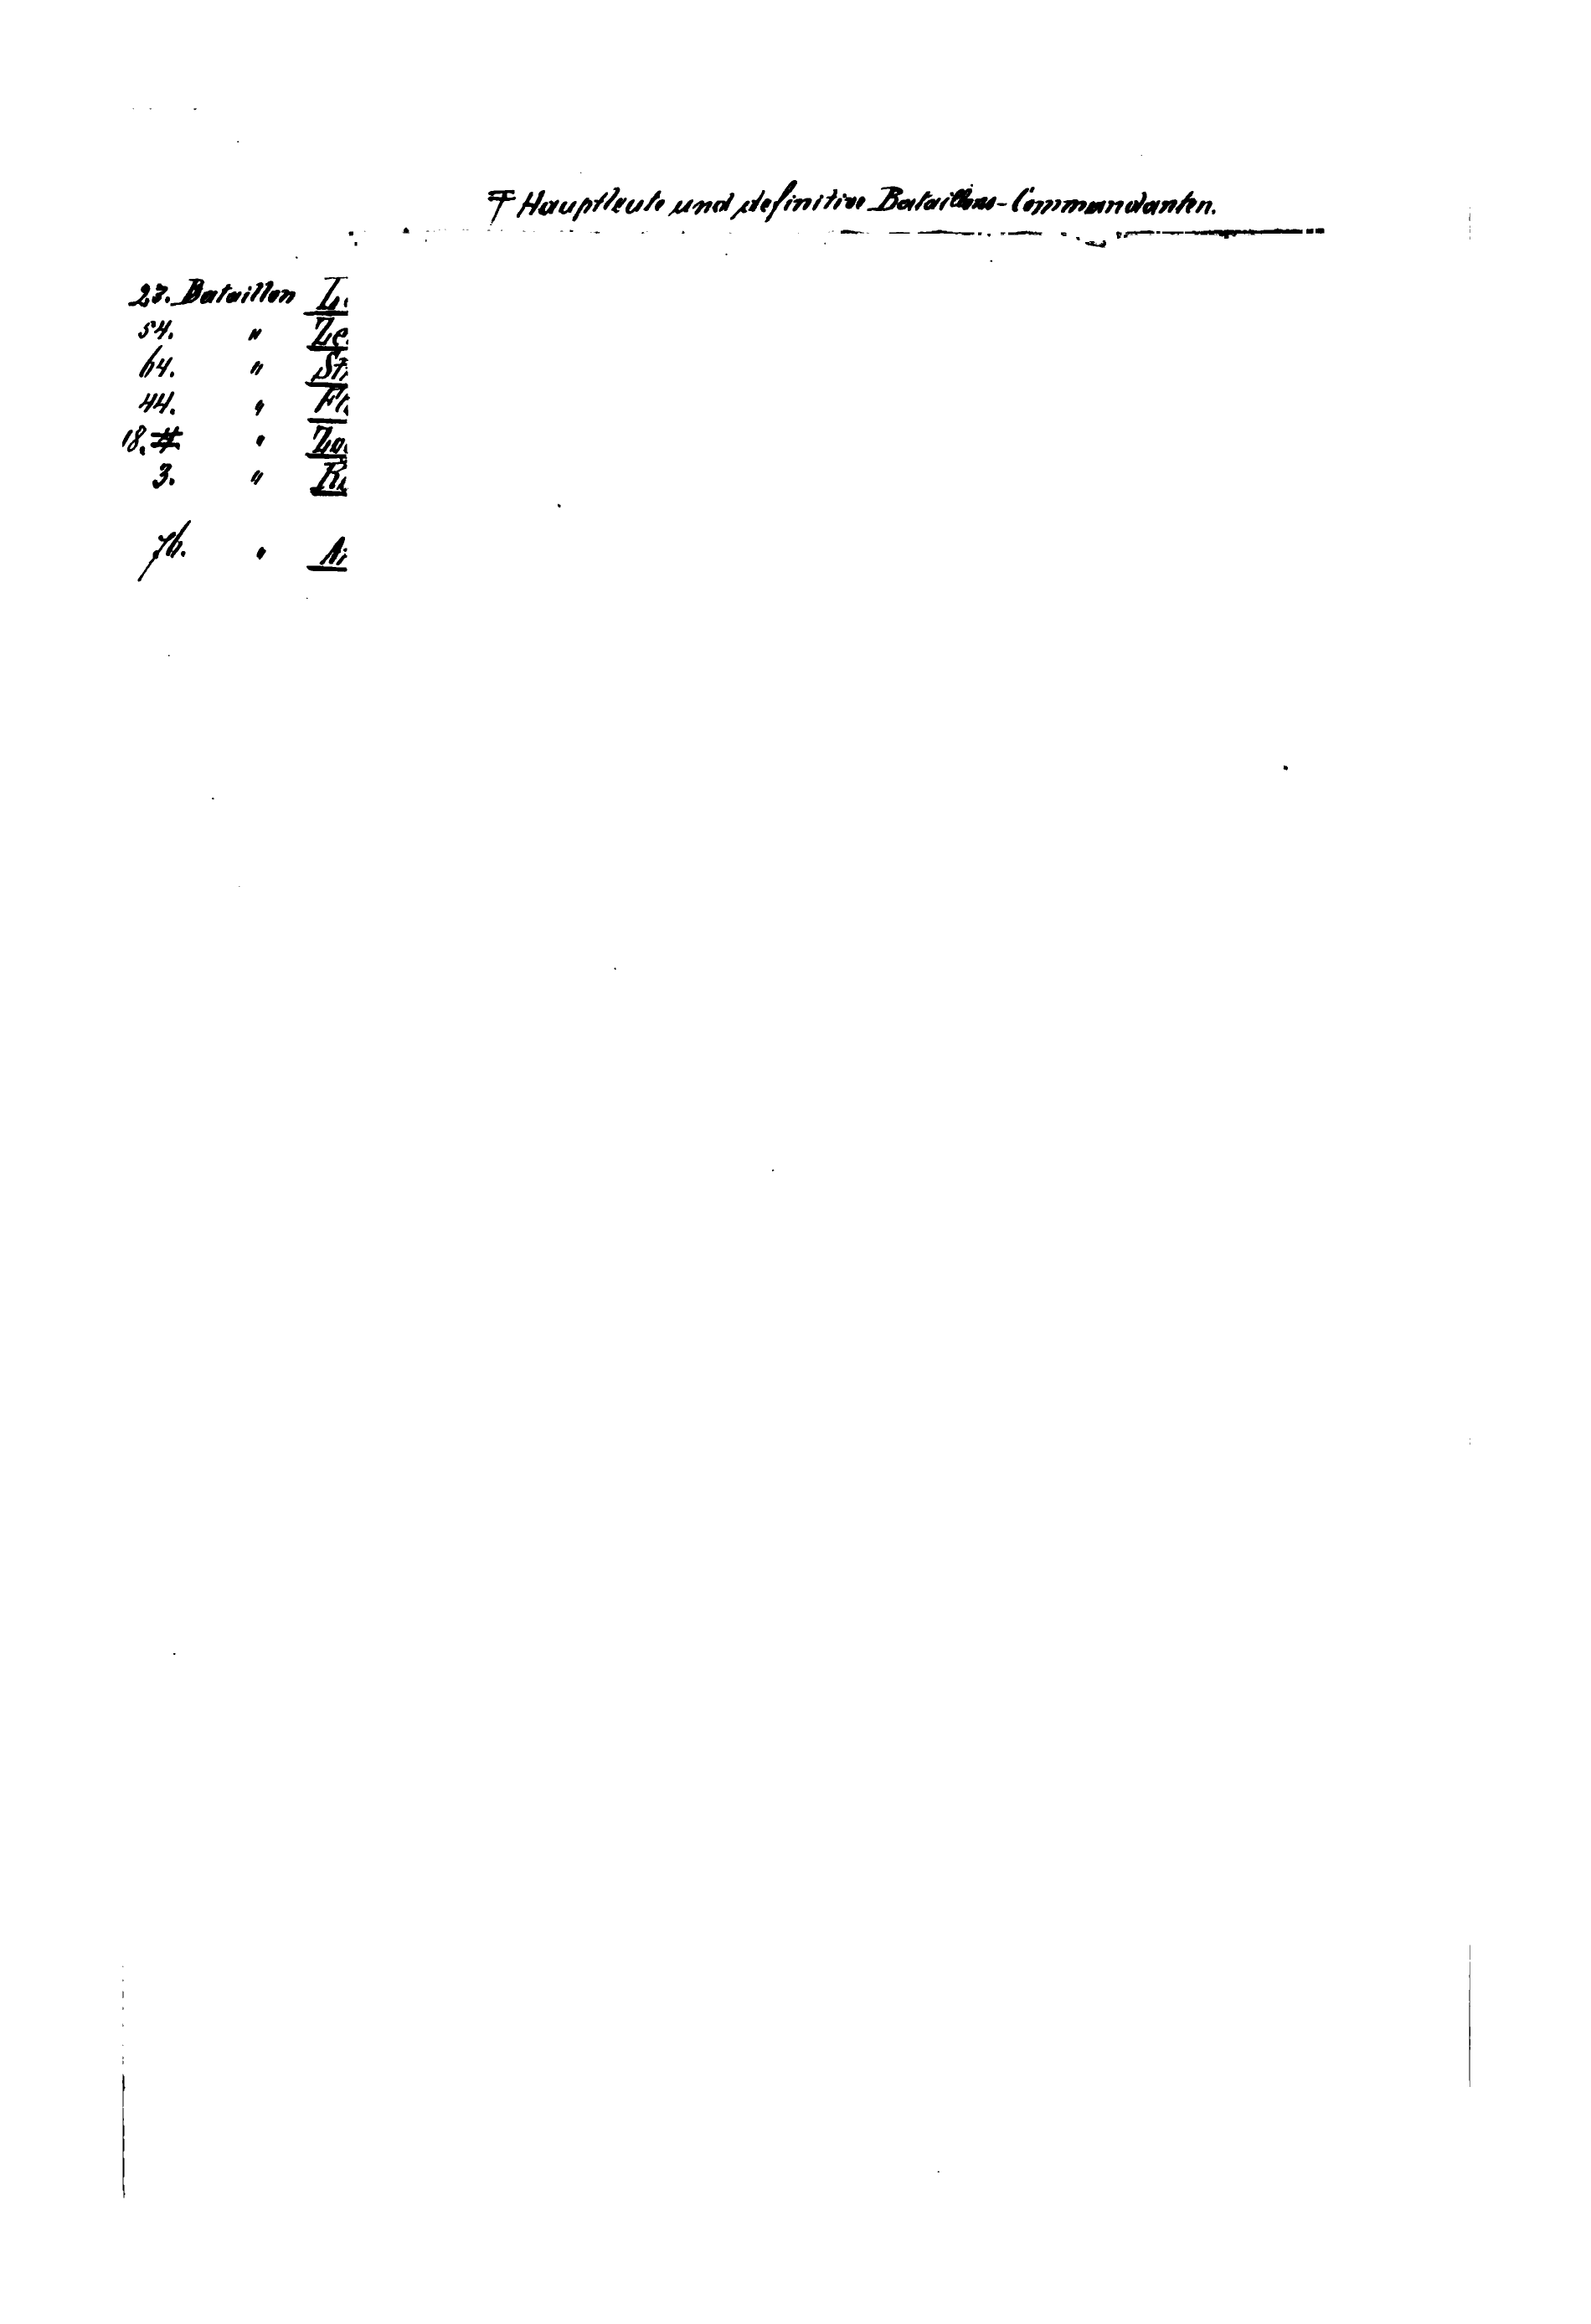 F Hauptleute und definitive Bataillons-Commandanten.
23. Bataillon
54. "
64. "
44. "
18. "
3. "
76. "